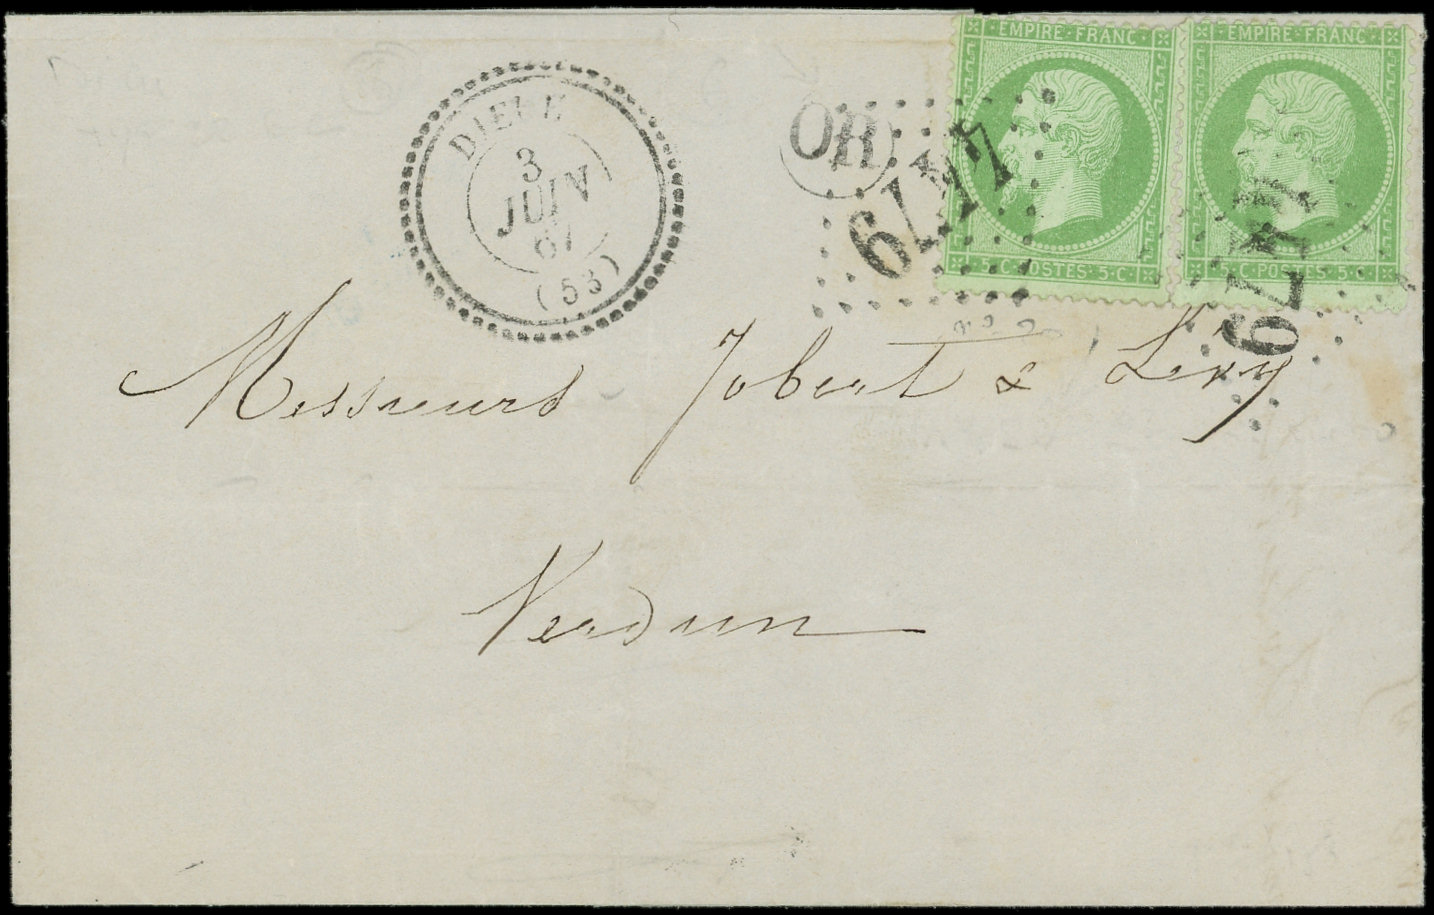 EMPIRE FRANC
EMPIRE FRANC
DIEUE
3
JUIN
67
(53)
OR
4479
4479
5·C·POSTES·5·C
C·POSTES·5·C
Messieurs Jobert & Lévy
Verdun